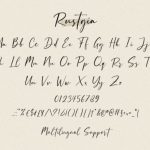 Rustgia
Aa Bb Cc Dd Ee Ff Gg Hh Ii Jj
Kk Ll Mm Nn Oo Pp Qq Rr Ss Tt
Uu Vv Ww Xx Yy Zz
0123456789
Multilingual Support